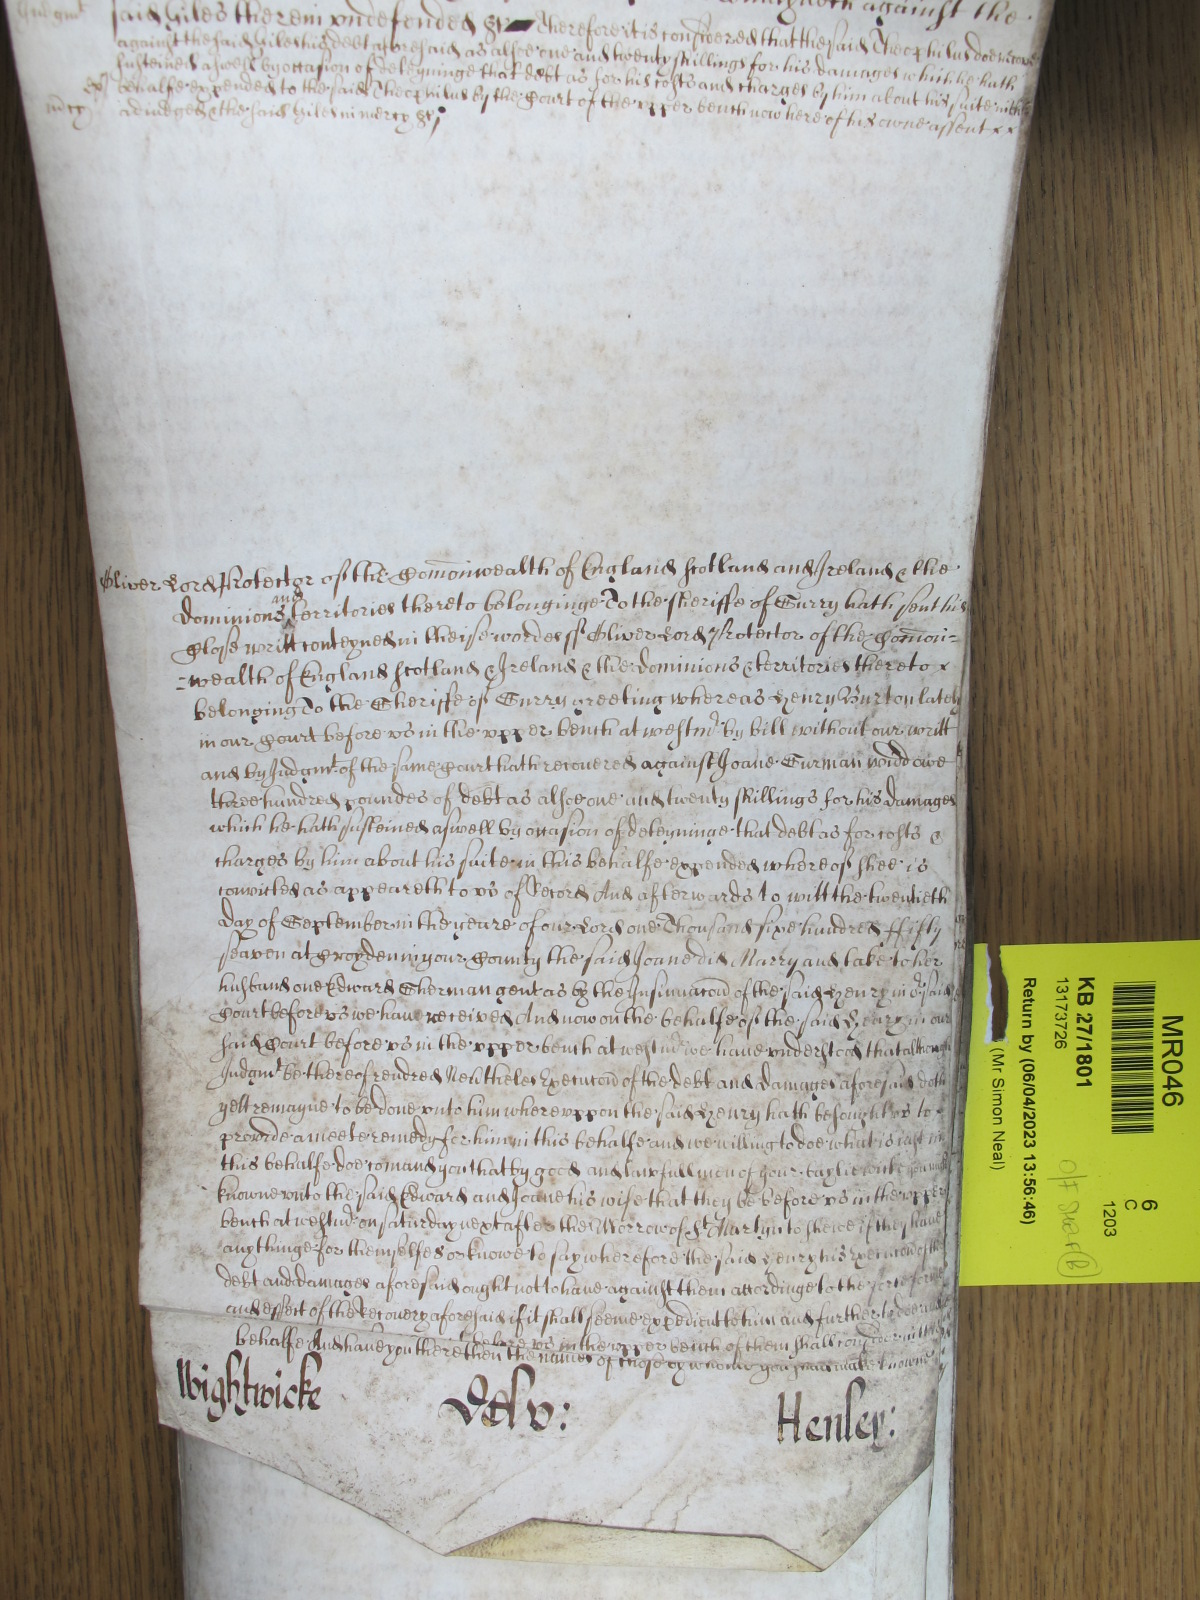 Judgmt said Giles therein undefended &c Therefore it is considered that the said Theophilus doe recover
against the said Giles his debt aforesaid as alsoe one and twenty shillings for his damages which he hath
susteined aswell by occasion of deteyninge that debt as for his costs and charges by him about his suite in this
behalfe expended to the said Theophilus by the Court of the upper bench now here of his owne assent x x
adiudged & the said Giles in mercy &c
Oliver Lord Protector of the Comonwealth of England Scotland and Ireland & the
Dominions and territories thereto belonginge To the sheriffe of Surry hath sent his
Close writt conteyned in theise wordes ss Oliver Lord Protector of the Comon=
=wealth of England Scotland & Ireland & the Dominions & territories thereto x
belonging To the Sheriffe of Surry greeting whereas Henry Burton lately
in our Court before us in the upper bench at westmr by bill without our writt
and by Judgmt of the same Court hath recovered against Joane Surman widdowe
three hundred poundes of debt as alsoe one and twenty shillings for his damages
which he hath susteined aswell by occasion of deteyninge that debt as for costs &
charges by him about his suite in this behalfe expended whereof shee is
convicted as appeareth to us of Record And afterwards to witt the twentieth
day of September in the yeare of our Lord one Thousand six hundred ffifty
seaven at Croyden in your County the said Joane did Marry and take to her
husband one Edward Sherman gent as by the Insinuacon of the said Henry in our said
Court before us we have received And now on the behalfe of the said Henry in our
said Court before us in the upper bench at westmr we have understood that although
Judgmt be thereof rendred Nevtheles Execucon of the debt and damages aforesaid doth
yett remayne to be done unto him whereuppon the said Henry hath besought us to
provide a meete remedy for him in this behalfe and we willing to doe what is just in
this behalfe doe comand you that by good and lawfull men of your baylewicke you make
knowne unto the said Edward and Joane his wife that they be before us in the upper
bench at westmr on saturday next after the Morrow of St Martyn to shewe if they have
any thinge for themselves or knowe to say wherefore the said Henry his Execucon of the
debt and damages aforesaid ought not to have against them accordinge to the force forme
and effect of the Recovery aforesaid if it shall seeme expedient to him and further to doe
behalfe And have you there then the names of those by whome you shall make knowne
before us in the upper bench of them shall consider in this
Wightwicke
Henley:
MR046
KB 27/1801
13173726
Return by (06/04/2023 13:56:46)
(Mr Simon Neal)
6
C
1203